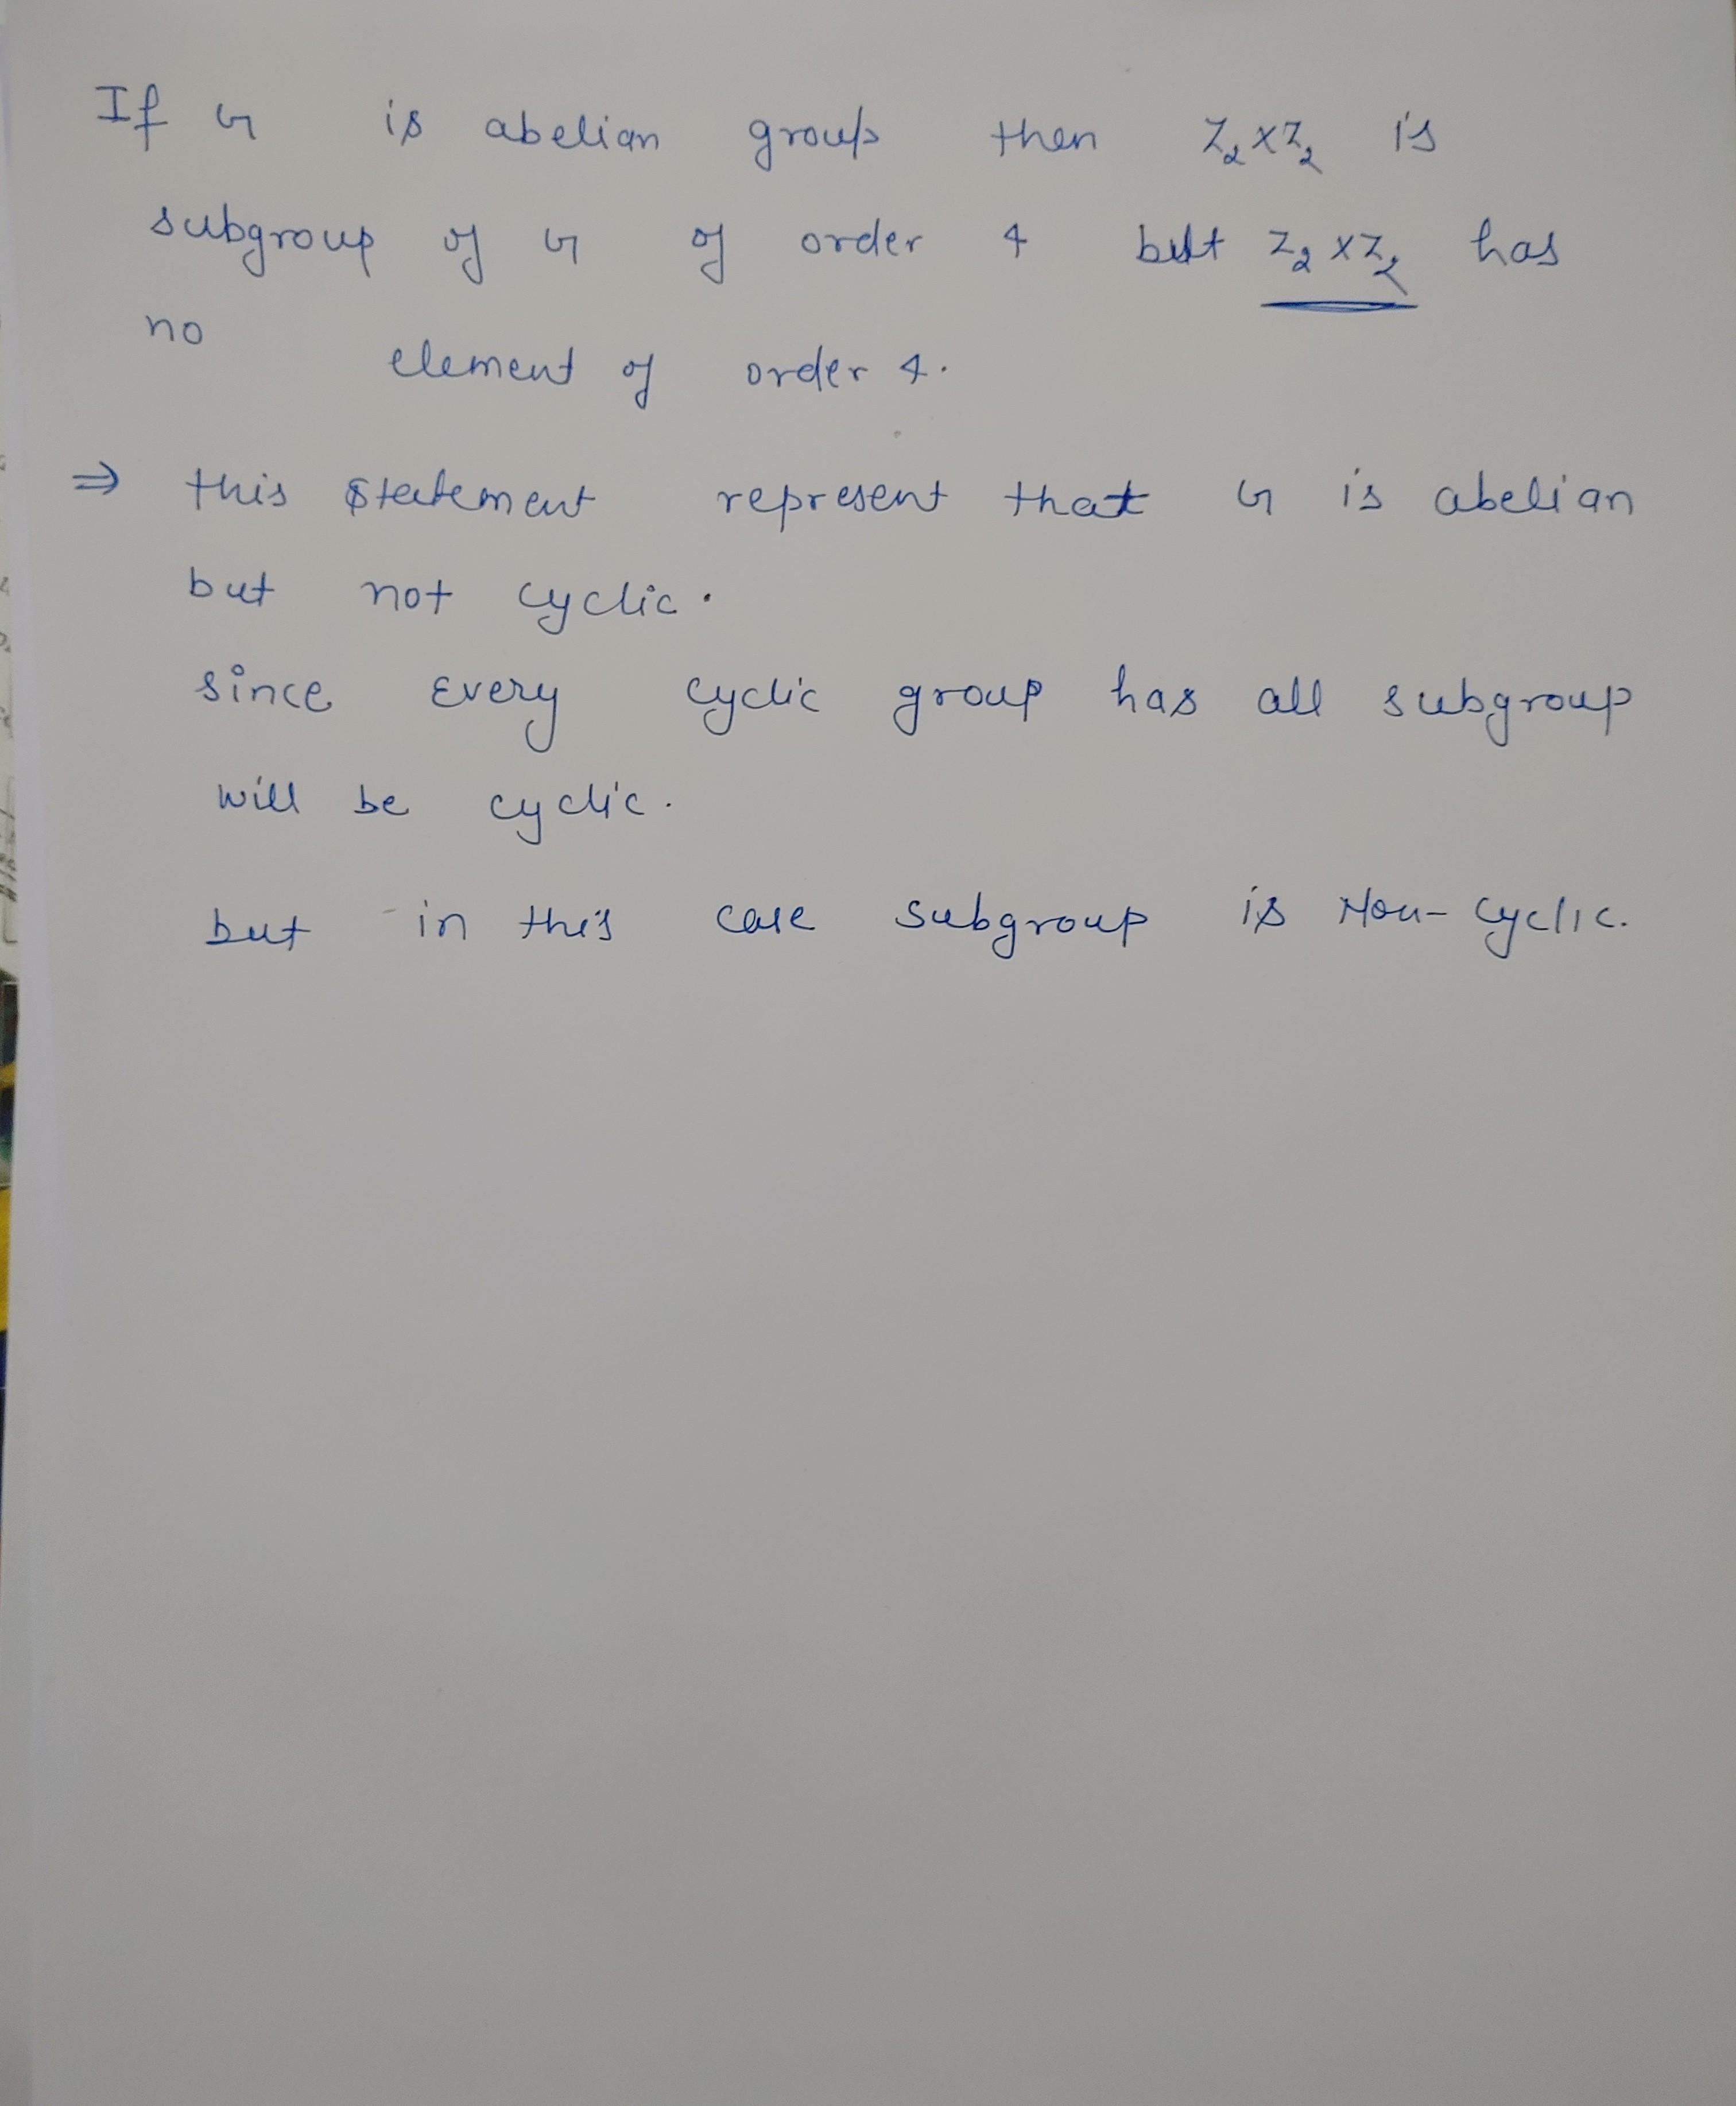 If G is abelian group then Z₂×Z₂ is
subgroup of G of order 4 but Z₂×Z₂ has
no element of order 4.
⇒ this statement represent that G is abelian
but not cyclic.
since Every cyclic group has all subgroup
will be cyclic.
but in this case subgroup is Non-cyclic.